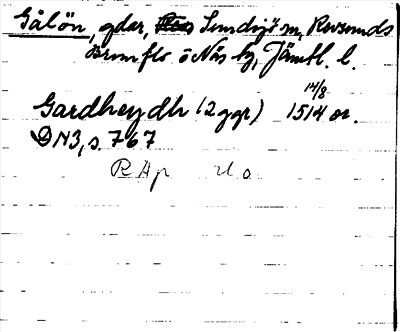 Gålön, gdar, Sundsjö sn, Revsunds
Brunflo ö Näs tg, Jämtl. l.
14/8
Gardheydh (2 ggr) 1514 or.
DN3, s. 767
RAp